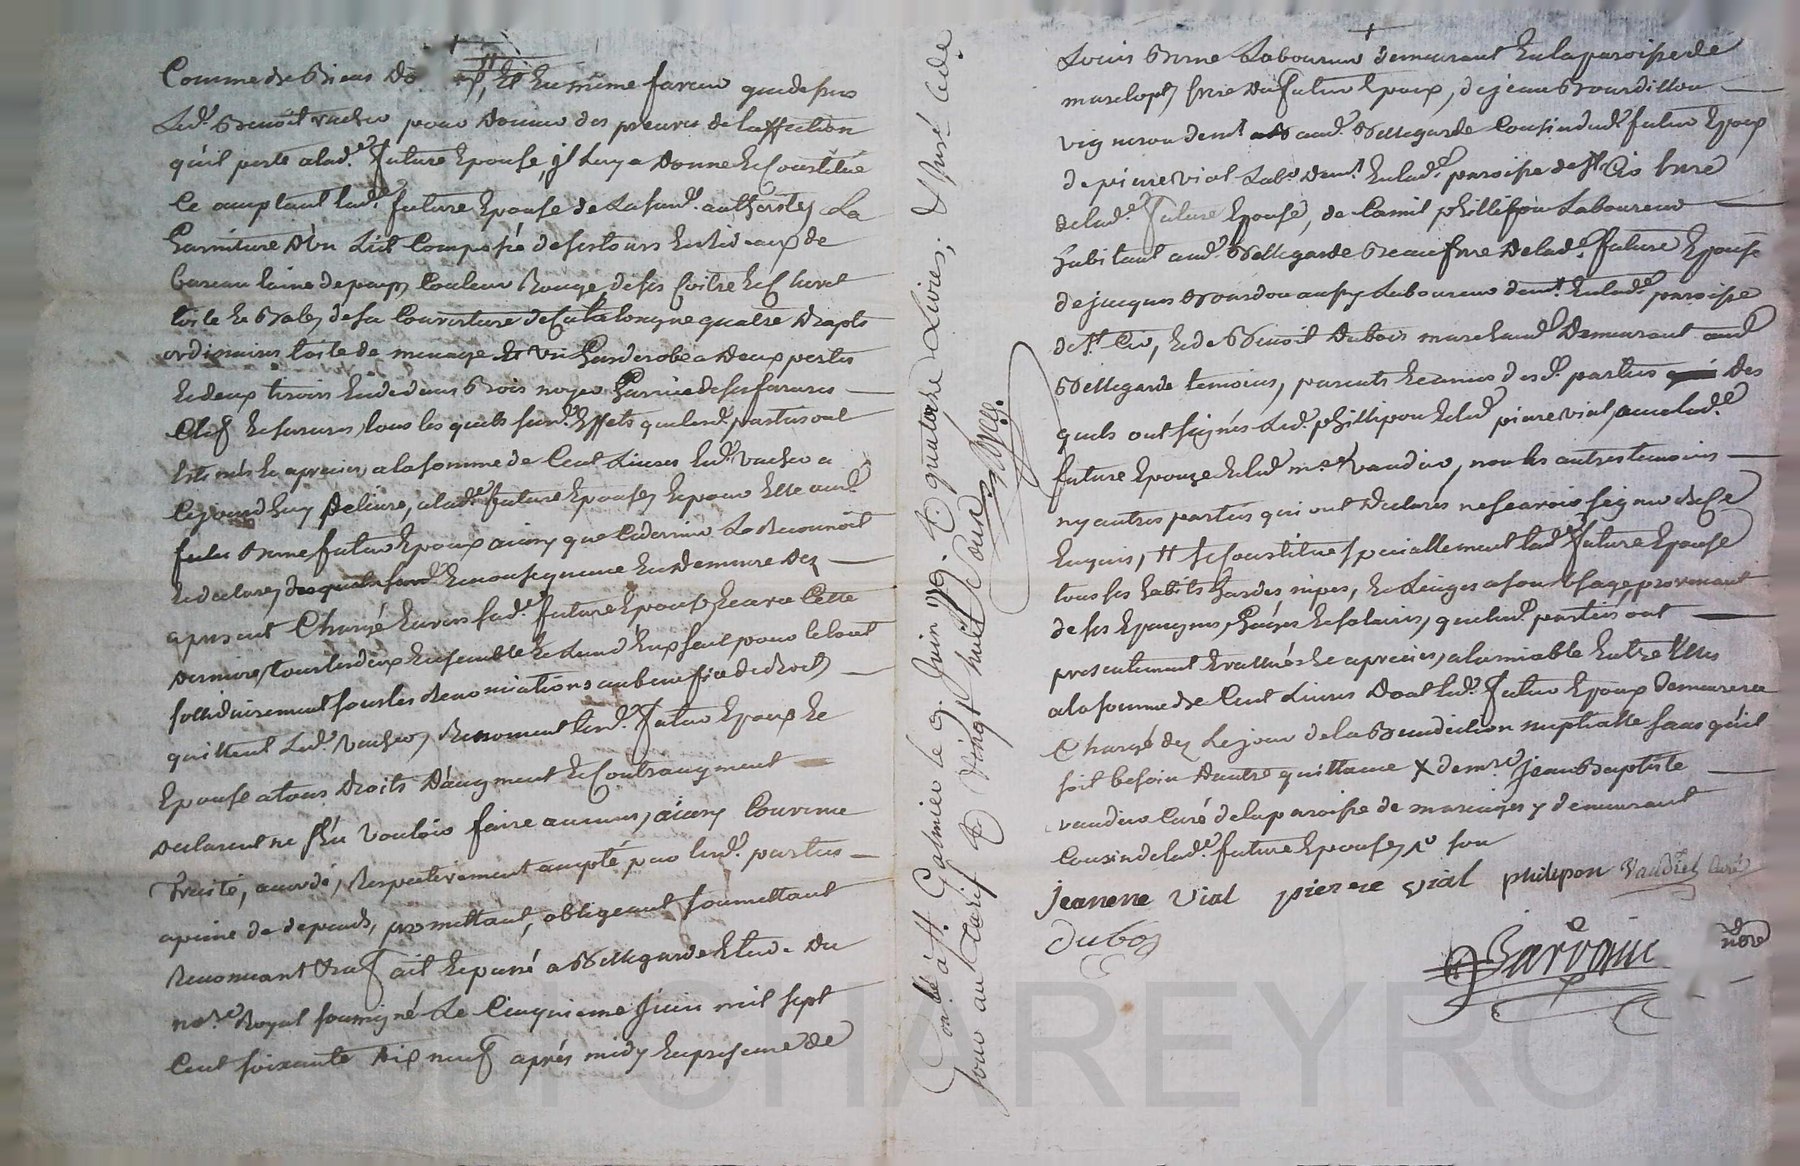 Comme de Biens Do ++, Et En même faveur que dessus
Led. Benoit vacher pour donner des preuves de Laffection
qu'il porte a lad.e future Epouse, jl Luy a Donné Et Constitué
Ce acceptant lad.e future Epouse de La sus.d. authorité, La
Garniture D'un Lict Composée de ses tours Et Rideaux de
bureau laine de pays Couleur Rouge, de ses Coitre Et Chevet
toile Et Bales, de sa Couverture de Catalongne quatre Draps
ordinaires toile de menage Et un Garderobe a Deux portes
Et deux tiroirs Bois noyer Garnie de ses farures
Clef Et serures, tous les quels sus.d. Effets que lesd. parties ont
Estimés Et apreciés a la somme de Cent Livres led. vacher a
Cejourd'huy Delivré, a lad.e future Epouse, Et pour Elle aud.
Brune futur Epoux ainsy que Ce dernier Le Reconnoit
Et declare, desquels sus.d. Et Consequence Il En Demeure Des
apresent Chargé Envers lad.e future Epouse, Et avec Cette
derniere, tous les deux Ensemble Et Lun d'Eux seul pour le tout
sollidairement sous les Renonciations au benefice de droit,
quittent Led. Vacher, Renoncent lesd. futur Epoux Et
Epouse a tous Droits D'augment Et Contraugment
declarant n'En Vouloir faire aucuns, ainsy Convenu
traité, acordé, Respectivement accepté par lesd. parties
a peine de depends, promettant, obligeant soumettant
Renonçant Fait Et passé a Bellegarde Etude Du
no.re Royal soussigné Le Cinquieme Juin mil sept
Cent soixante Dix neuf après midy En presence de
Controllé à St Galmier le 9. Juin 1779. R quatorze Livres; & Insé Ledit
jour au Tarif R vingt huit sous
Louis Brune Laboureur demeurant En la paroisse de
marclopt, frere Du futur Epoux, de jean Bourdillon
vigneron dem.t aud. Bellegarde Cousin dud. futur Epoux
de pierre vial Lab.r Dem.t En lad.e paroisse de St Cir frere
de lad.e future Epouse, de Camil phillippon Laboureur
habitant aud. Bellegarde Beaufrere De lad.e future Epouse
de jacques Bourdon aussy Laboureur dem.t En lad.e paroisse
de St Cir, Et de Benoit Dubois marchand Demeurant aud.
Bellegarde temoins, parents Et amis desd. parties Des
quels ont signés Led. phillipon Et led. pierre vial, avec lad.e
future Epouze Et led. m.re vaudier, non les autres temoins
ny autres parties qui ont Declarés ne scavoir signer de Ce
Enquis, ++ Se Constitue speciallement lad.e future Epouse
tous ses habits hardes nipes, Et Linges a son Usage, provenant
de ses Epargnes, Gages Et salaires, que lesd. parties ont
presentement Evalués Et apreciés, a lamiable Entre Elles
a la somme de Cent Livres Dont led. futur Epoux demeurera
Chargé des Le jour de la Benediction nuptialle sans qu'il
soit besoin D'autre quittance X de m.re Jean Baptiste
vaudier Curé de la paroisse de maringes y demeurant
Cousin de lad.e future Epouse,
jeanene vial pierre vial philipon Vaudier Curé
dubois